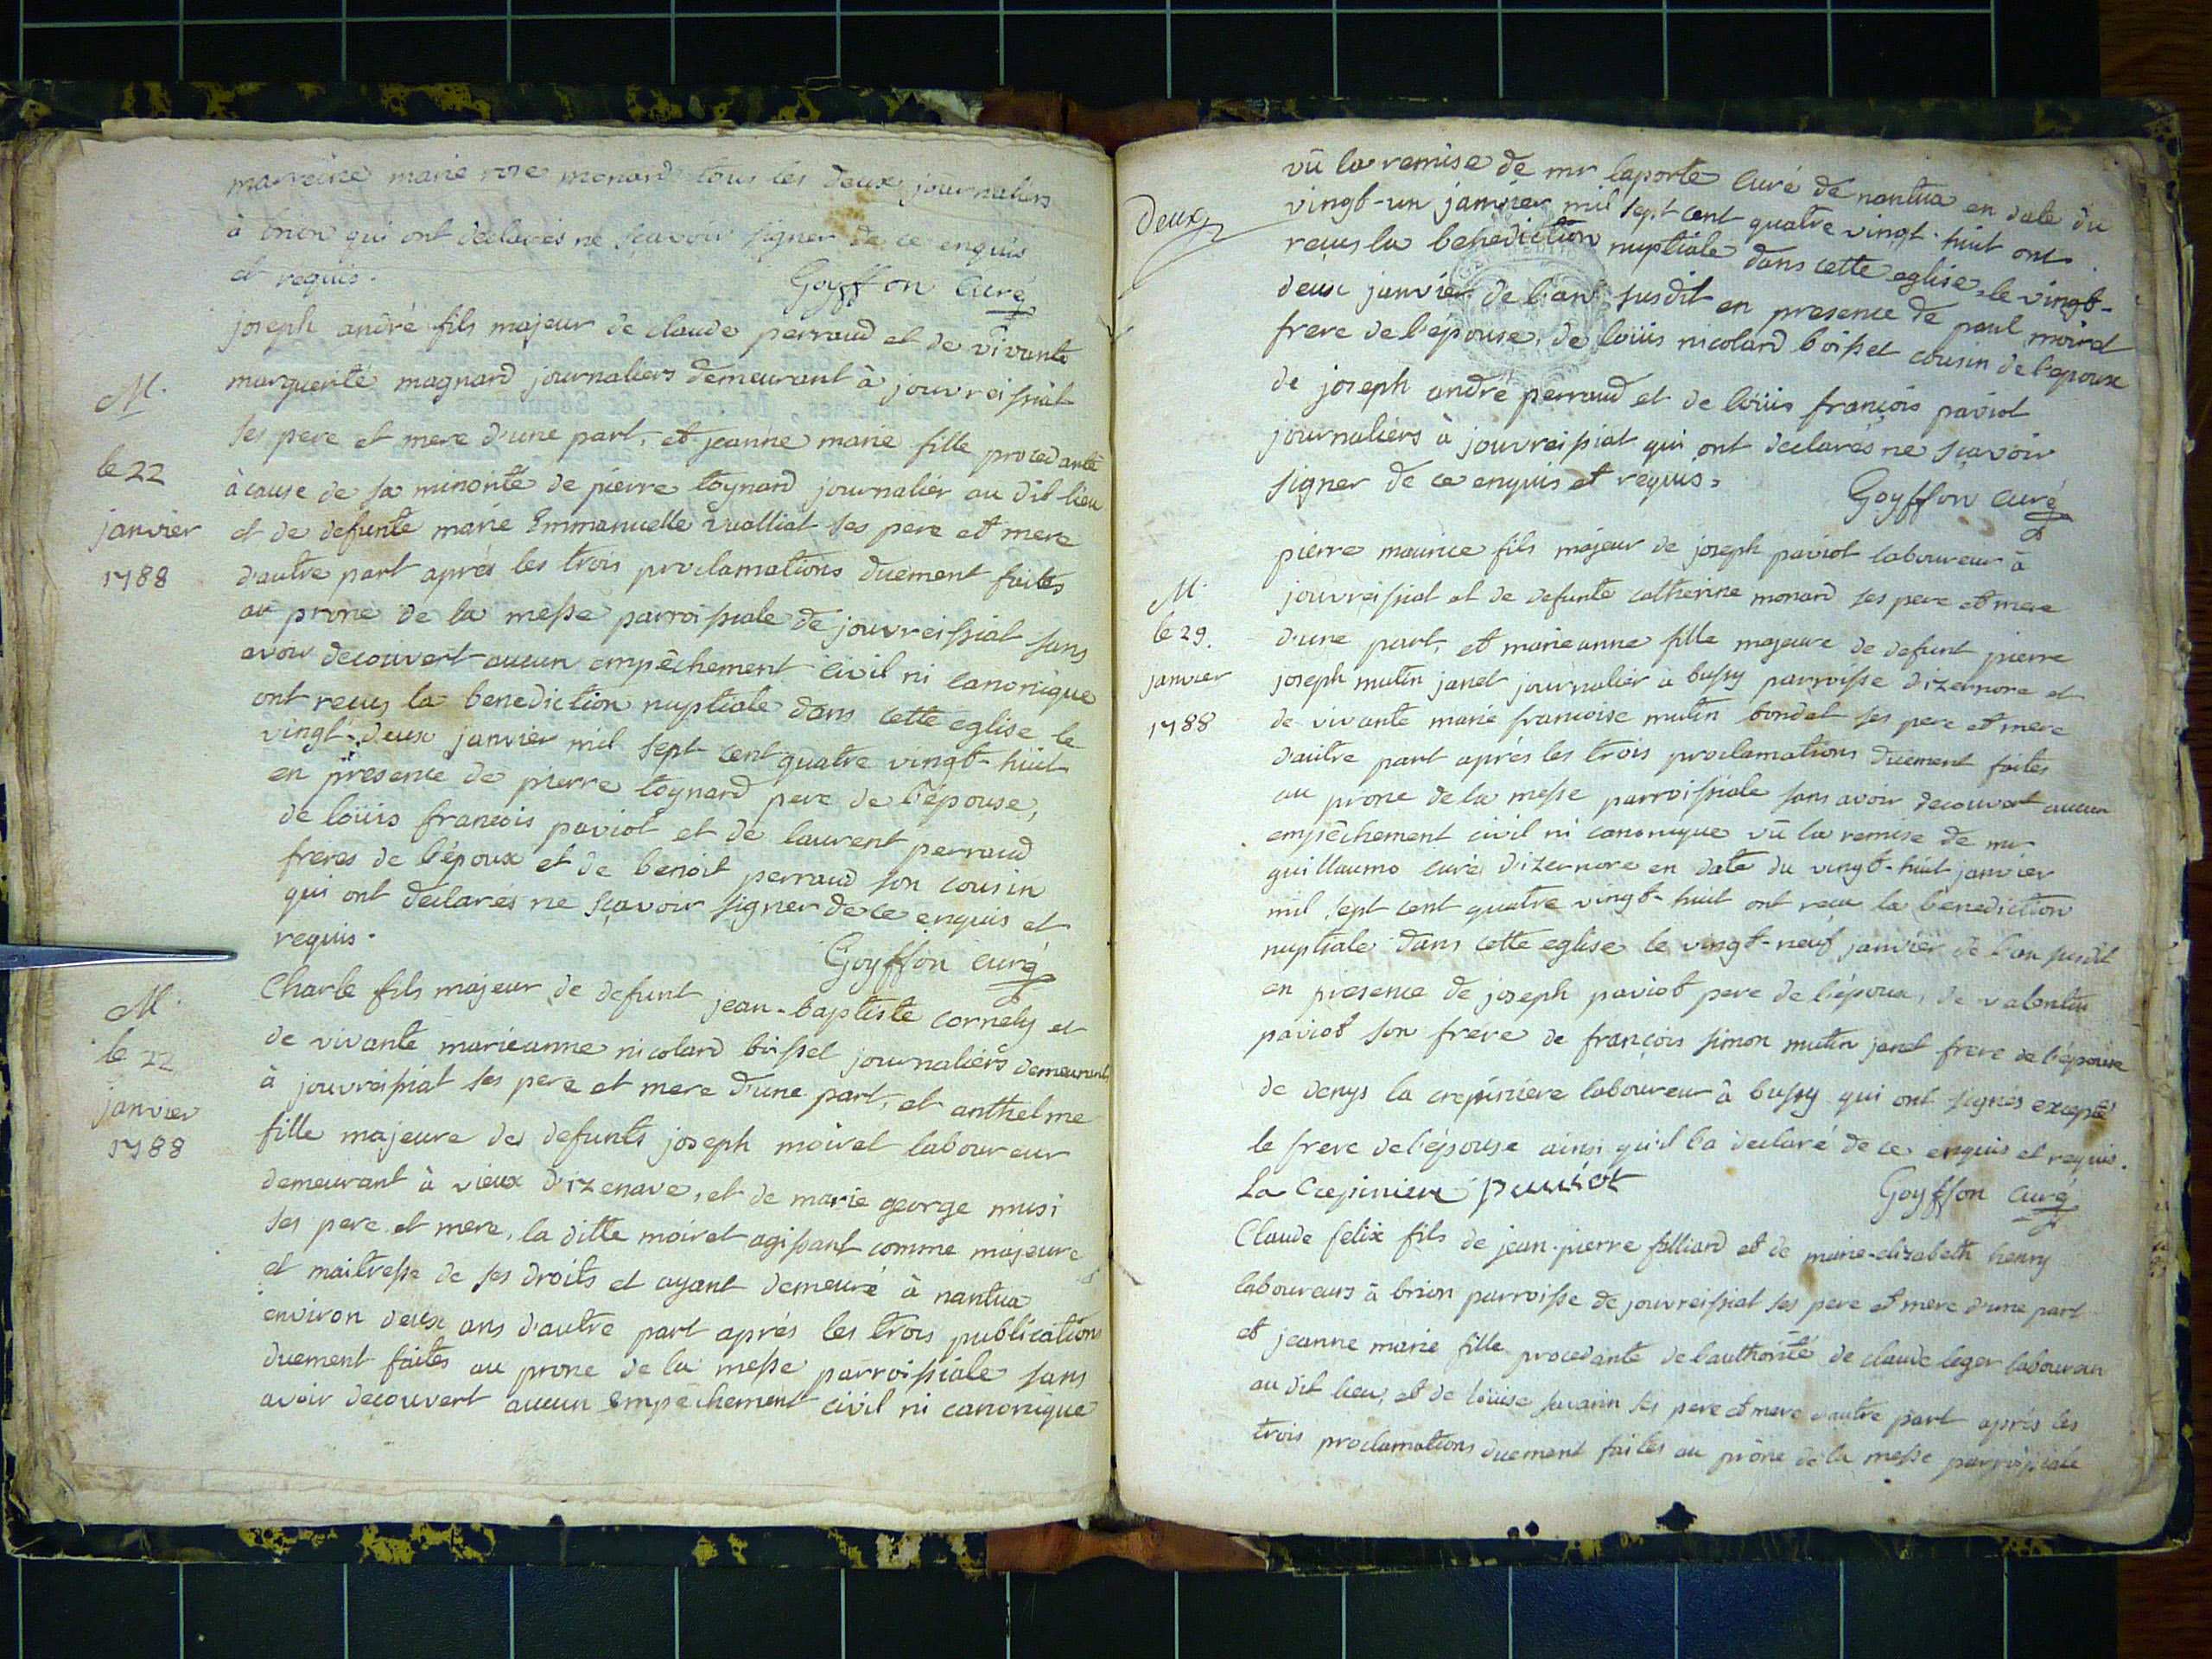 marreine marie rose monard tous les deux journaliers
à brion qui ont declarés ne sçavoir signer de ce enquis
et requis.
Goyffon curé
M.
le 22
janvier
1788
joseph andré fils majeur de claude perraud et de vivante
marguerite magnard journaliers demeurant à jouvreissiat
ses pere et mere d'une part, et jeanne marie fille procedante
à cause de sa minorité de pierre toynard journalier au dit lieu
et de defunte marie Emmanuelle vualliat ses pere et mere
d'autre part aprés les trois proclamations duement faites
au prone de la messe parroissiale de jouvreissiat sans
avoir decouvert aucun empêchement civil ni canonique
ont reçus la benediction nuptiale dans cette eglise le
vingt-deux janvier mil sept cent quatre vingt-huit
en presence de pierre toynard pere de l'épouse,
de loüis francois paviot et de laurent perraud
freres de l'époux et de benoit perraud son cousin
qui ont declarés ne sçavoir signer de ce enquis et
requis.
Goyffon curé
M.
le 22
janvier
1788
Charle fils majeur de defunt jean-baptiste cornely et
de vivante marieanne nicolard boissel journaliers demeurants
à jouvreissiat ses pere et mere d'une part, et anthelme
fille majeure des defunts joseph moiret laboureur
demeurant à vieux d'izenave, et de marie george musi
ses pere et mere, la ditte moiret agissant comme majeure
et maitresse de ses droits et ayant demeuré à nantua
environ deux ans d'autre part aprés les trois publications
duement faites au prone de la messe parroissiale sans
avoir decouvert aucun empêchement civil ni canonique
Deux
vû la remise de mr laporte curé de nantua en date du
vingt-un janvier mil sept cent quatre vingt-huit ont
reçus la benediction nuptiale dans cette eglise le vingt-
deux janvier de l'an susdit en presence de paul moiret
frere de l'épouse, de loüis nicolard boissel cousin de l'époux
de joseph andré perraud et de loüis françois paviot
journaliers à jouvreissiat qui ont declarés ne sçavoir
signer de ce enquis et requis.
Goyffon curé
M.
le 29.
janvier
1788
pierre maurice fils majeur de joseph paviot laboureur à
jouvreissiat et de defunte catherine monard ses pere et mere
d'une part, et marieanne fille majeure de defunt pierre
joseph mutin janet journalier à bussy parroisse d'izernore et
de vivante marie francoise mutin bondet ses pere et mere
d'autre part aprés les trois proclamations duement faites
au prone de la messe parroissiale sans avoir decouvert aucun
empêchement civil ni canonique vû la remise de mr
guillaumo curé d'izernore en date du vingt-huit janvier
mil sept cent quatre vingt-huit ont reçu la benediction
nuptiale dans cette eglise le vingt-neuf janvier de l'an susdit
en presence de joseph paviot pere de l'époux, de valentin
paviot son frere de françois simon mutin janet frere de l'épouse
de denys la crepiniere laboureur à bussy qui ont signés excepté
le frere de l'épouse ainsi qu'il l'a declaré de ce enquis et requis.
La Crepiniere paviot
Goyffon curé
Claude felix fils de jean-pierre folliard et de marie-elizabeth henry
laboureurs à brion parroisse de jouvreissiat ses pere et mere d'une part
et jeanne marie fille procedante de l'authorité de claude leger laboureur
au dit lieu, et de loüise savarin ses pere et mere d'autre part aprés les
trois proclamations duement faites au prône de la messe parroissiale